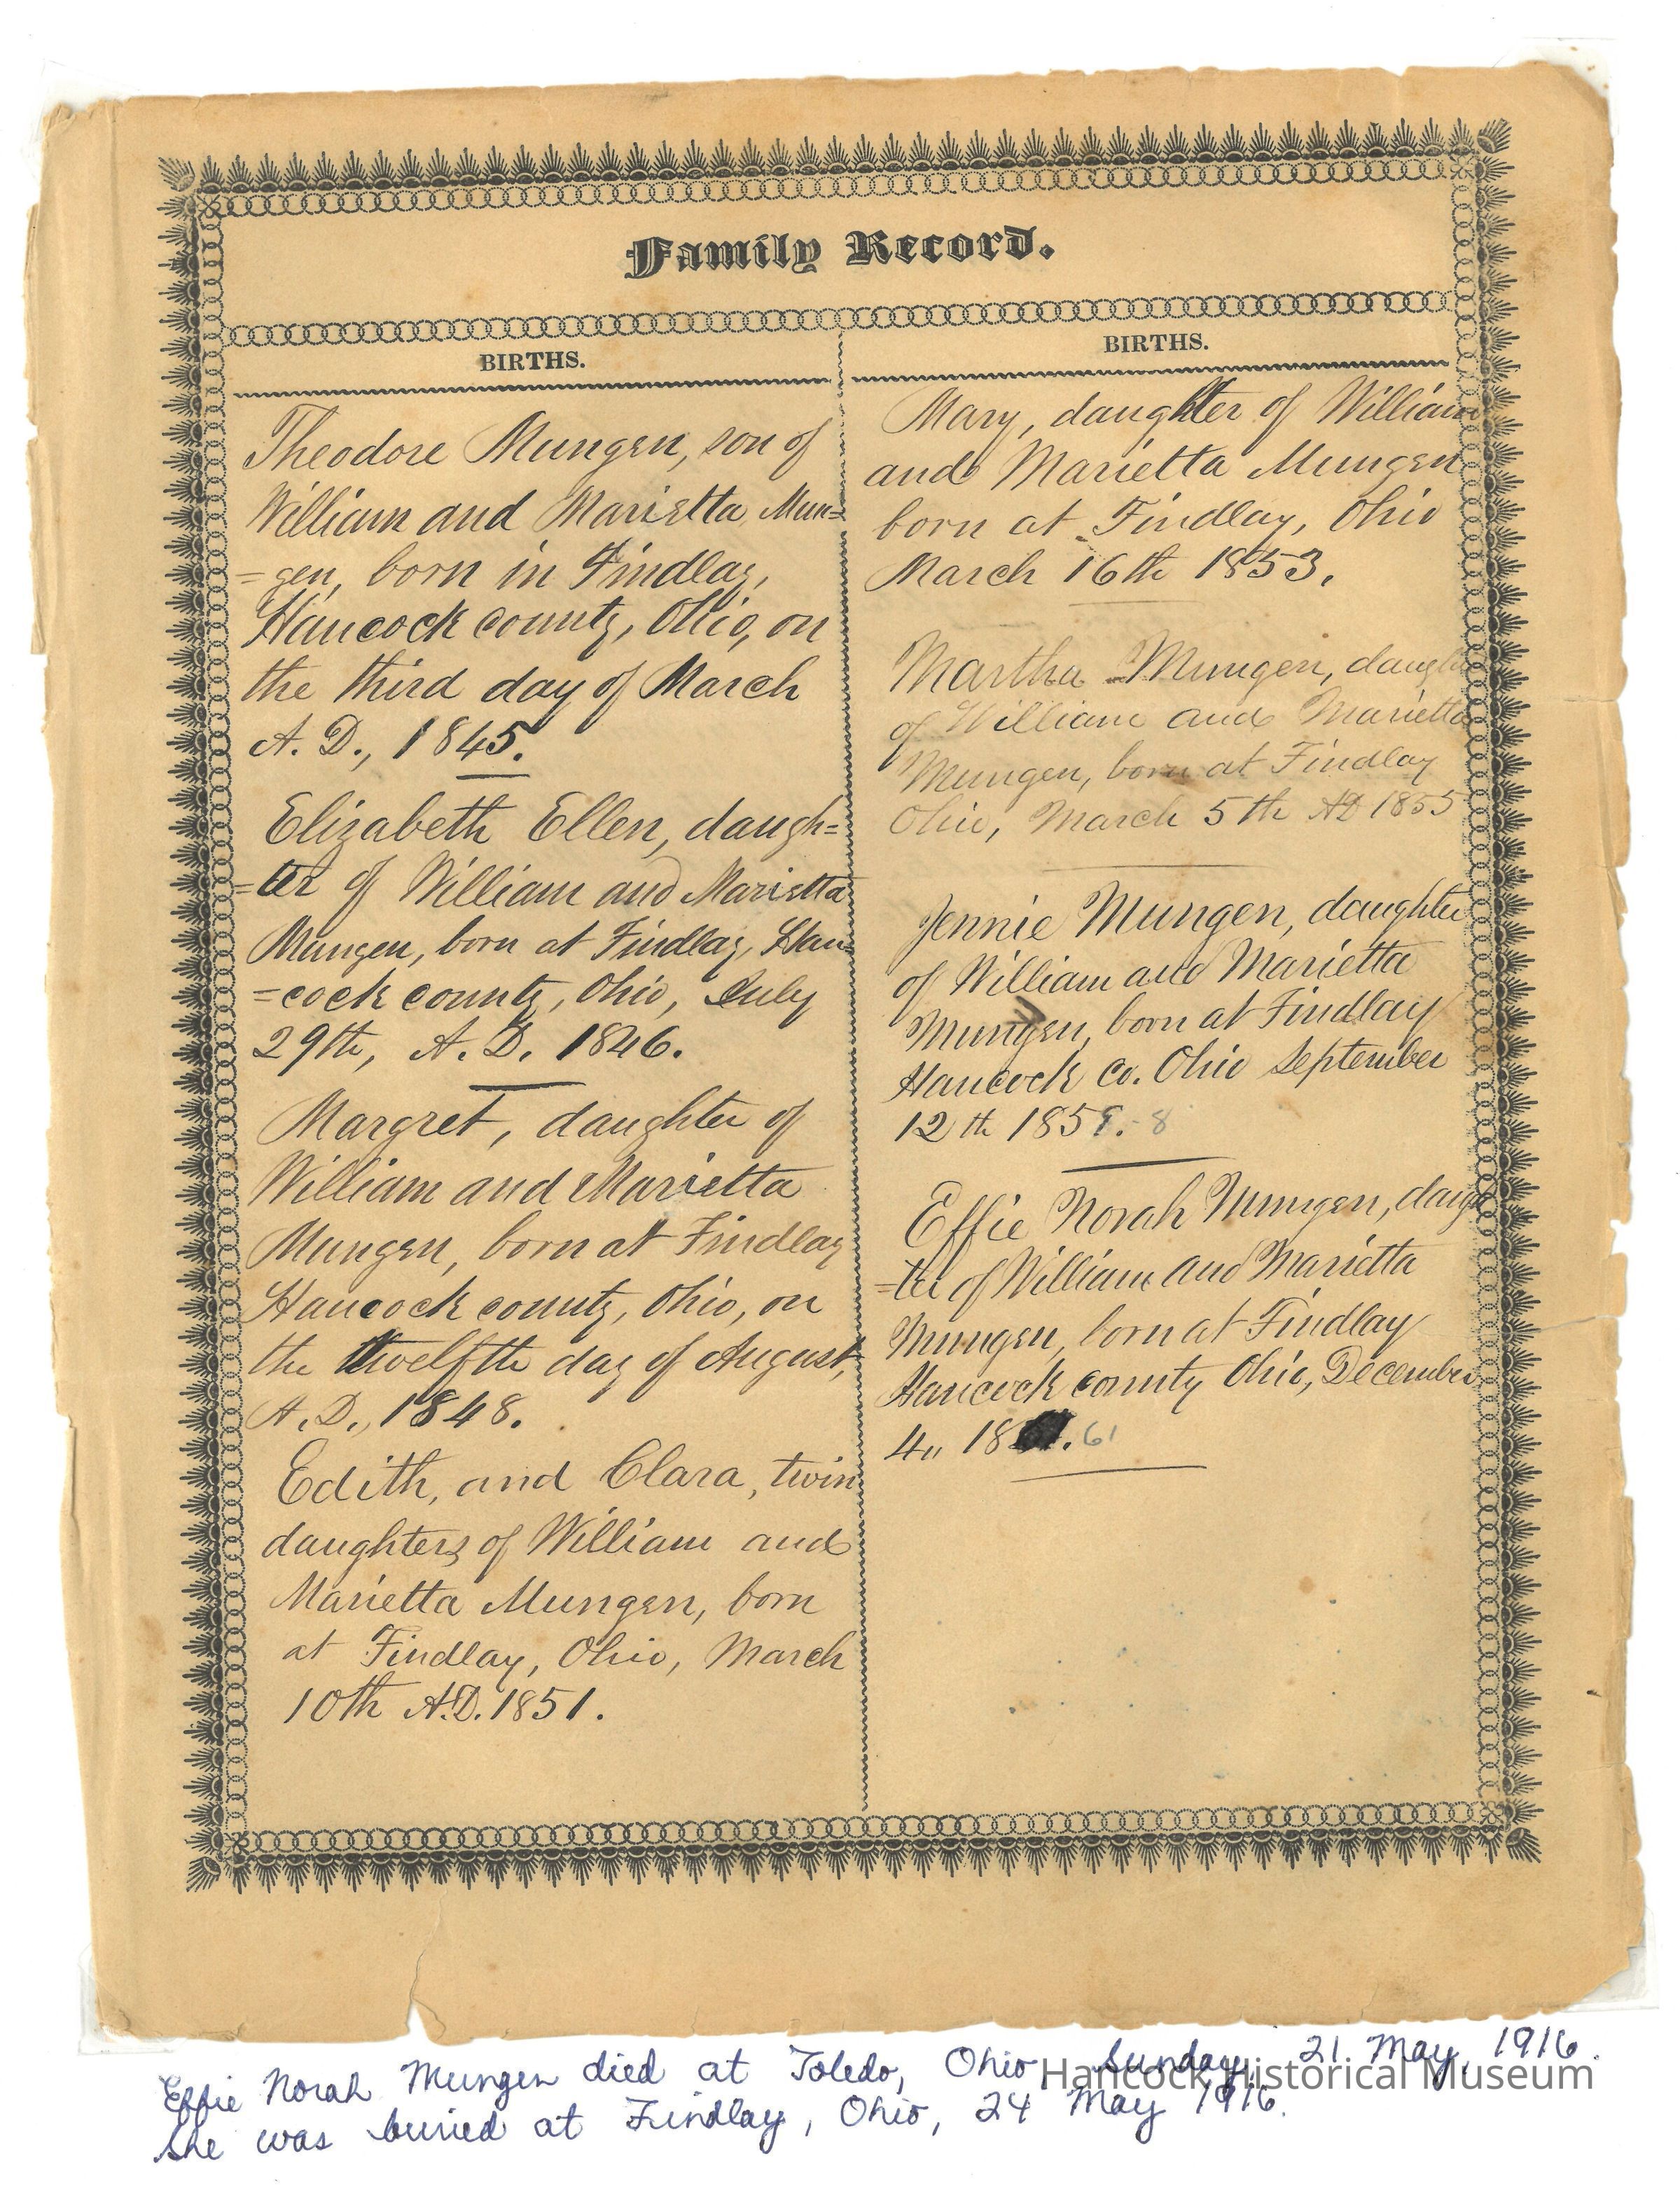 Family Record.
BIRTHS.
Theodore Mungen, son of
William and Marietta Mun=
=gen, born in Findlay,
Hancock county, Ohio, on
the third day of March
A. D., 1845.
Elizabeth Ellen, daugh=
=ter of William and Marietta
Mungen, born at Findlay, Han=
=cock county, Ohio, July
29th, A. D. 1846.
Margret, daughter of
William and Marietta
Mungen, born at Findlay
Hancock county, Ohio, on
the twelfth day of August,
A. D., 1848.
Edith, and Clara, twin
daughters of William and
Marietta Mungen, born
at Findlay, Ohio, March
10th A.D. 1851.
BIRTHS.
Mary, daughter of William
and Marietta Mungen
born at Findlay, Ohio
March 16th 1853.
Martha Mungen, daught
of William and Marietta
Mungen, born at Findlay
Ohio, March 5th AD 1855
Jennie Mungen, daughter
of William and Marietta
Mungen, born at Findlay
Hancock co. Ohio September
12th 1859. - 8
Effie Norah Mungen, daugh
=ter of William and Marietta
Mungen, born at Findlay
Hancock county Ohio, December
4" 18 . 61
Effie Norah Mungen died at Toledo, Ohio, Sunday, 21 May, 1916.
She was buried at Findlay, Ohio, 24 May 1916.
Hancock Historical Museum